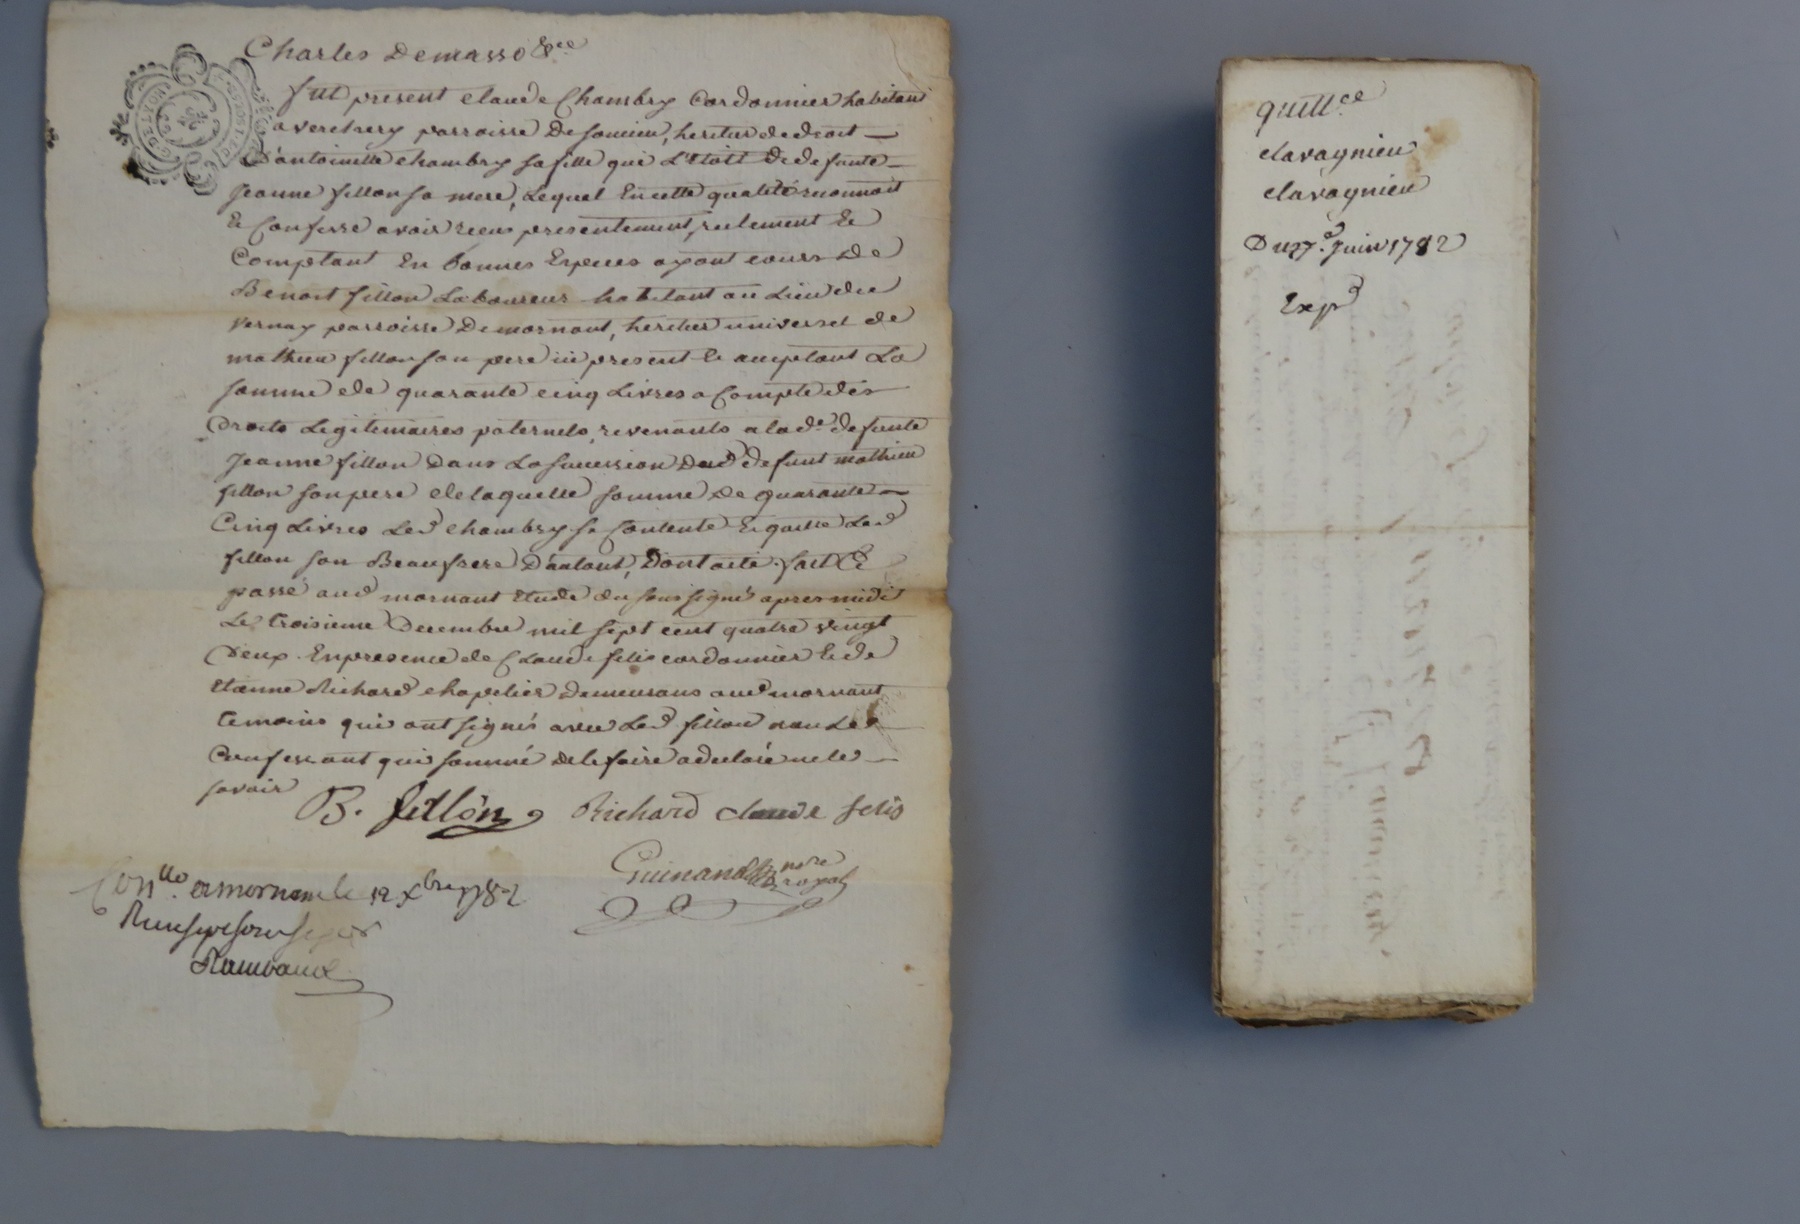 Charles Demasso &ce
fut present Claude Chambry Cordonnier habitant
a verchery parroisse De somieu, heritier de droit
D'antoinette chambry sa fille qui L'etoit De defunte
Jeanne fillon sa mere, Lequel En cette qualité reconnoit
Et Confesse avoir recu presentement, reelement Et
Comptant En bonnes Especes ayant cours De
Benoit fillon Laboureur habitant au Lieu du
vernay parroisse De mornant, heritier universel de
mathieu fillon son pere ici present Et acceptant La
somme de quarante cinq Livres a Compte des
Droits Legitimaires paternels, revenants a lade. defunte
Jeanne fillon Dans La succession Dud defunt mathieu
fillon son pere de laquelle somme De quarante
Cinq Livres Led chambry se Contente Et quitte Led
fillon son Beaufrere D'autant, Dont acte. fait Et
passé aud mornant Etude du sous signé apres midi
Le troisieme Decembre mil sept cent quatre vingt
Deux. En presence de Claude felis cordonnier Et de
Etienne Richard chapelier Demeurans aud mornant
temoins qui ont signés avec Led fillon non Le
Confessant qui sommé de le faire a declaré ne le
savoir
B. fillon Richard claude felis
Guinand nore royal
Conllé a mornant le 12 Xbre 1782
Rambaud
quittce
clavagnieu
clavagnieu
Du 27. Juin 1782
Expd